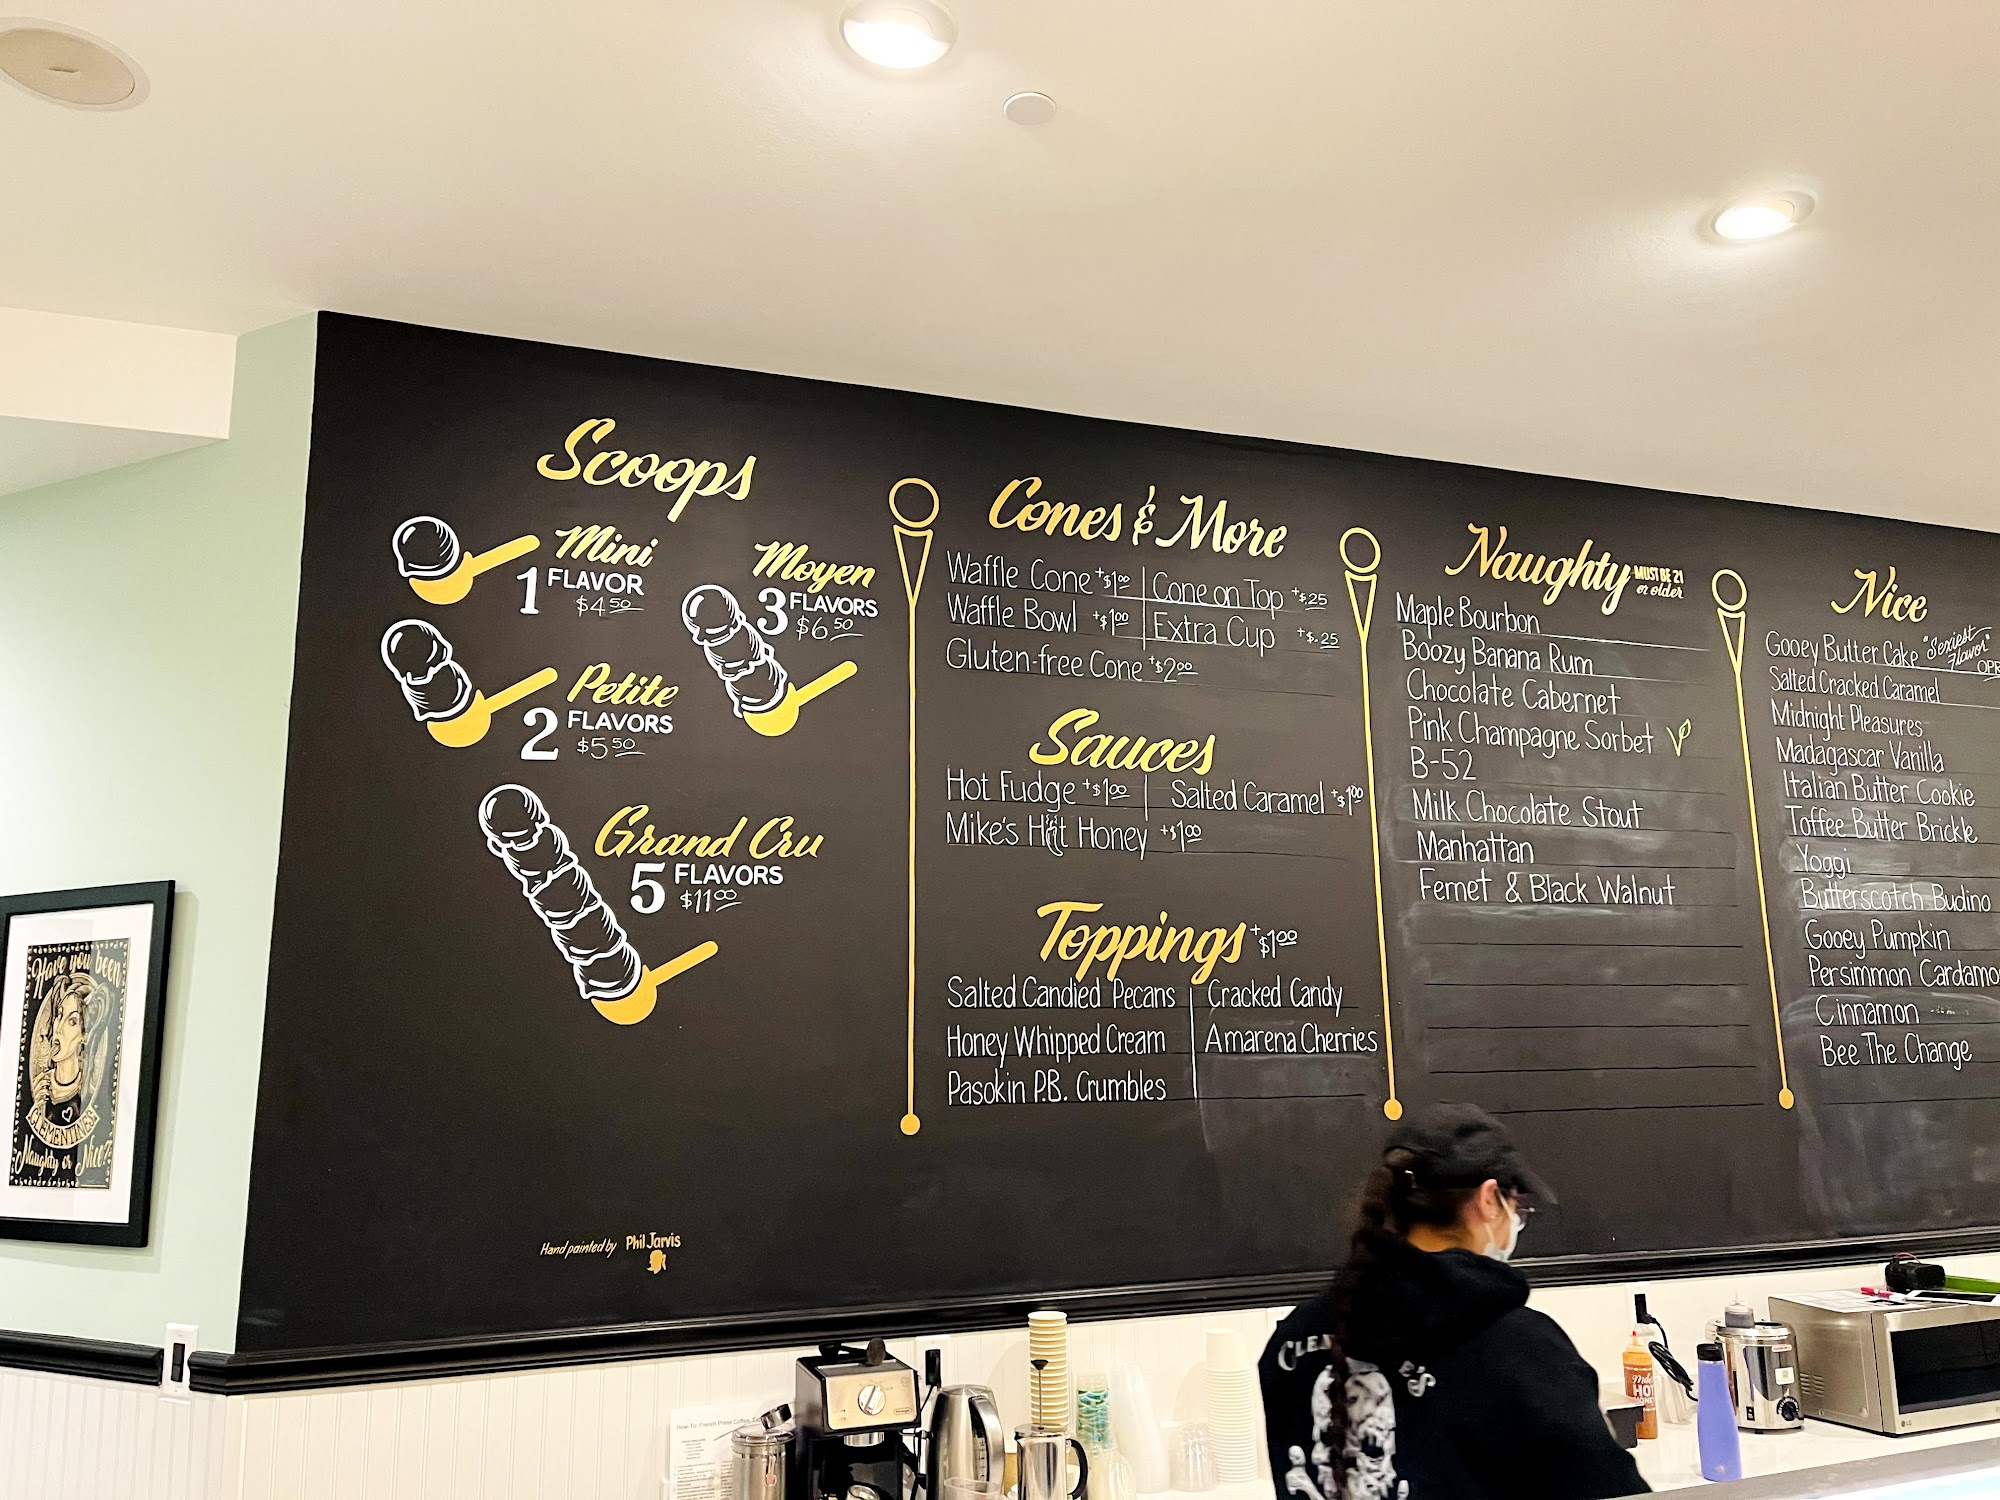 Scoops
Mini
1 FLAVOR
$4.50
Moyen
3 FLAVORS
$6.50
Petite
2 FLAVORS
$5.50
Grand Cru
5 FLAVORS
$11.00
Hand painted by Phil Jarvis
Cones & More
Waffle Cone +$1.00 | Cone on Top +$.25
Waffle Bowl +$1.00 | Extra Cup +$.25
Gluten-free Cone +$2.00
Sauces
Hot Fudge +$1.00 | Salted Caramel +$1.00
Mike's Hot Honey +$1.00
Toppings +$1.00
Salted Candied Pecans | Cracked Candy
Honey Whipped Cream | Amarena Cherries
Pasokin P.B. Crumbles
Naughty MUST BE 21
or older
Maple Bourbon
Boozy Banana Rum
Chocolate Cabernet
Pink Champagne Sorbet V
B-52
Milk Chocolate Stout
Manhattan
Fernet & Black Walnut
Nice
Gooey Butter Cake "Sexiest
Flavor"
Salted Cracked Caramel
Midnight Pleasures
Madagascar Vanilla
Italian Butter Cookie
Toffee Butter Brickle
Yoggi
Butterscotch Budino
Gooey Pumpkin
Persimmon Cardamo
Cinnamon
Bee The Change
Have you been
CLEMENTINE'S
Naughty or Nice?
How-To: French Press Coffee
HOT